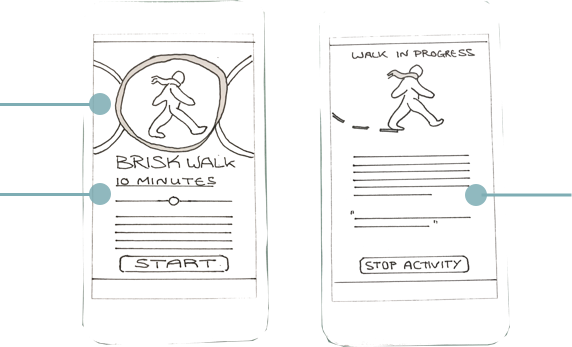 BRISK WALK
10 MINUTES
START
WALK IN PROGRESS
"
"
STOP ACTIVITY